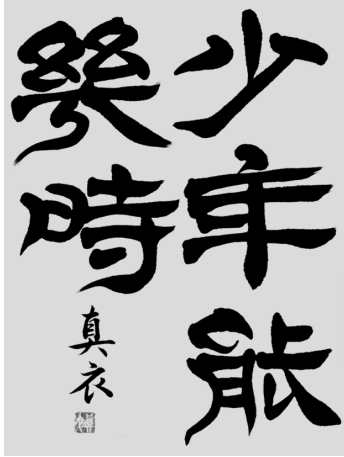 少年能
幾時
真衣